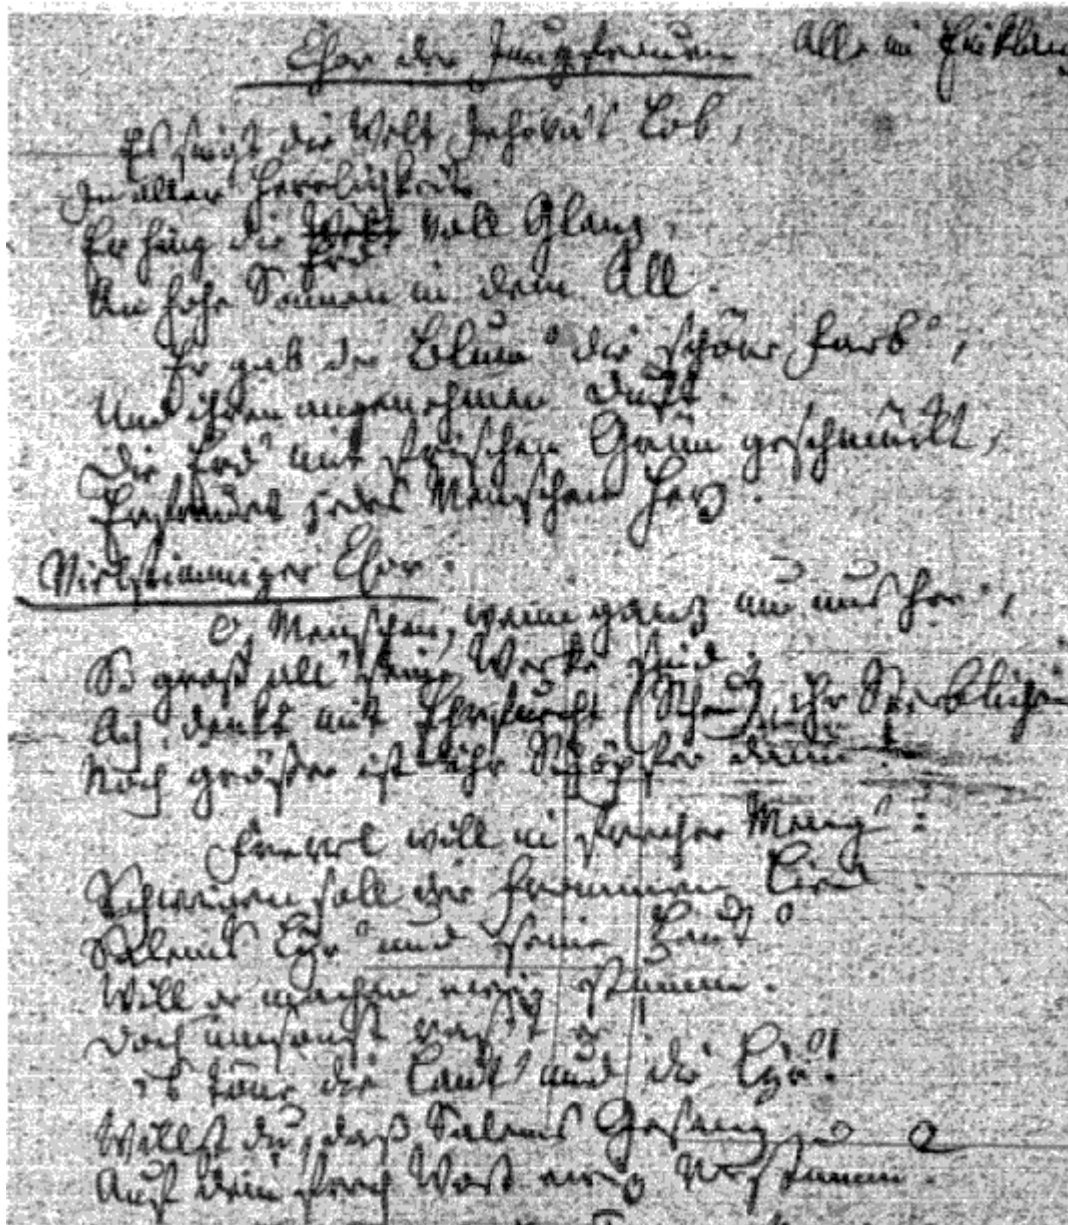 Chor der Jungfrauen Alle im Einklang
Es singt die Welt Jehova's Lob,
In aller Herrlichkeit
Er hing die Welt Erd voll Glanz,
An hohe Sonnen in dem All.
Er gab der Blum' die schöne Farb',
Und ihren angenehmen Duft.
Die Erd' mit frischem Grün geschmückt,
Erfreuet jedes Menschen Herz.
Vielstimmiger Chor.
O, Menschen, wenn ganz um uns her,
So groß all' seine Werke sind
Ach denkt mit Ehrfurcht ihr Sterblichen
Noch größer ist ihr Schöpfer dann
Frevel will in frecher
Schweigen soll der Frommen Lied
Salems Lyr' und seine Laut'
Will er machen ewig stumm.
Doch umsonst er
es töne die Laut' und die Lyr'!
Willst du, daß Salems Gesang
Auf dein frech Wort ewig verstumm.